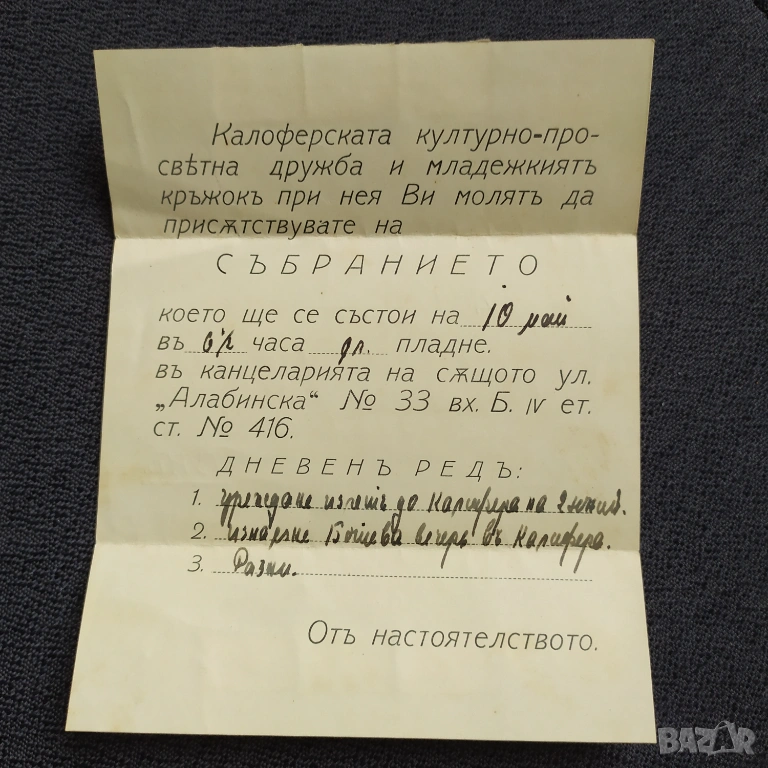 Калоферската културно-про-
свѣтна дружба и младежкиятъ
кръжокъ при нея Ви молятъ да
присѫтствувате на
СЪБРАНИЕТО
което ще се състои на 10 май
въ 6½ часа сл. пладне.
въ канцеларията на сѫщото ул.
„Алабинска“ № 33 вх. Б. IV ет.
ст. № 416.
ДНЕВЕНЪ РЕДЪ:
1. Уреждане излетъ до Калофера на 2 юний.
2. Изнасяне Ботева вечерь въ Калофера.
3. Разни.
Отъ настоятелството.
BAZAR